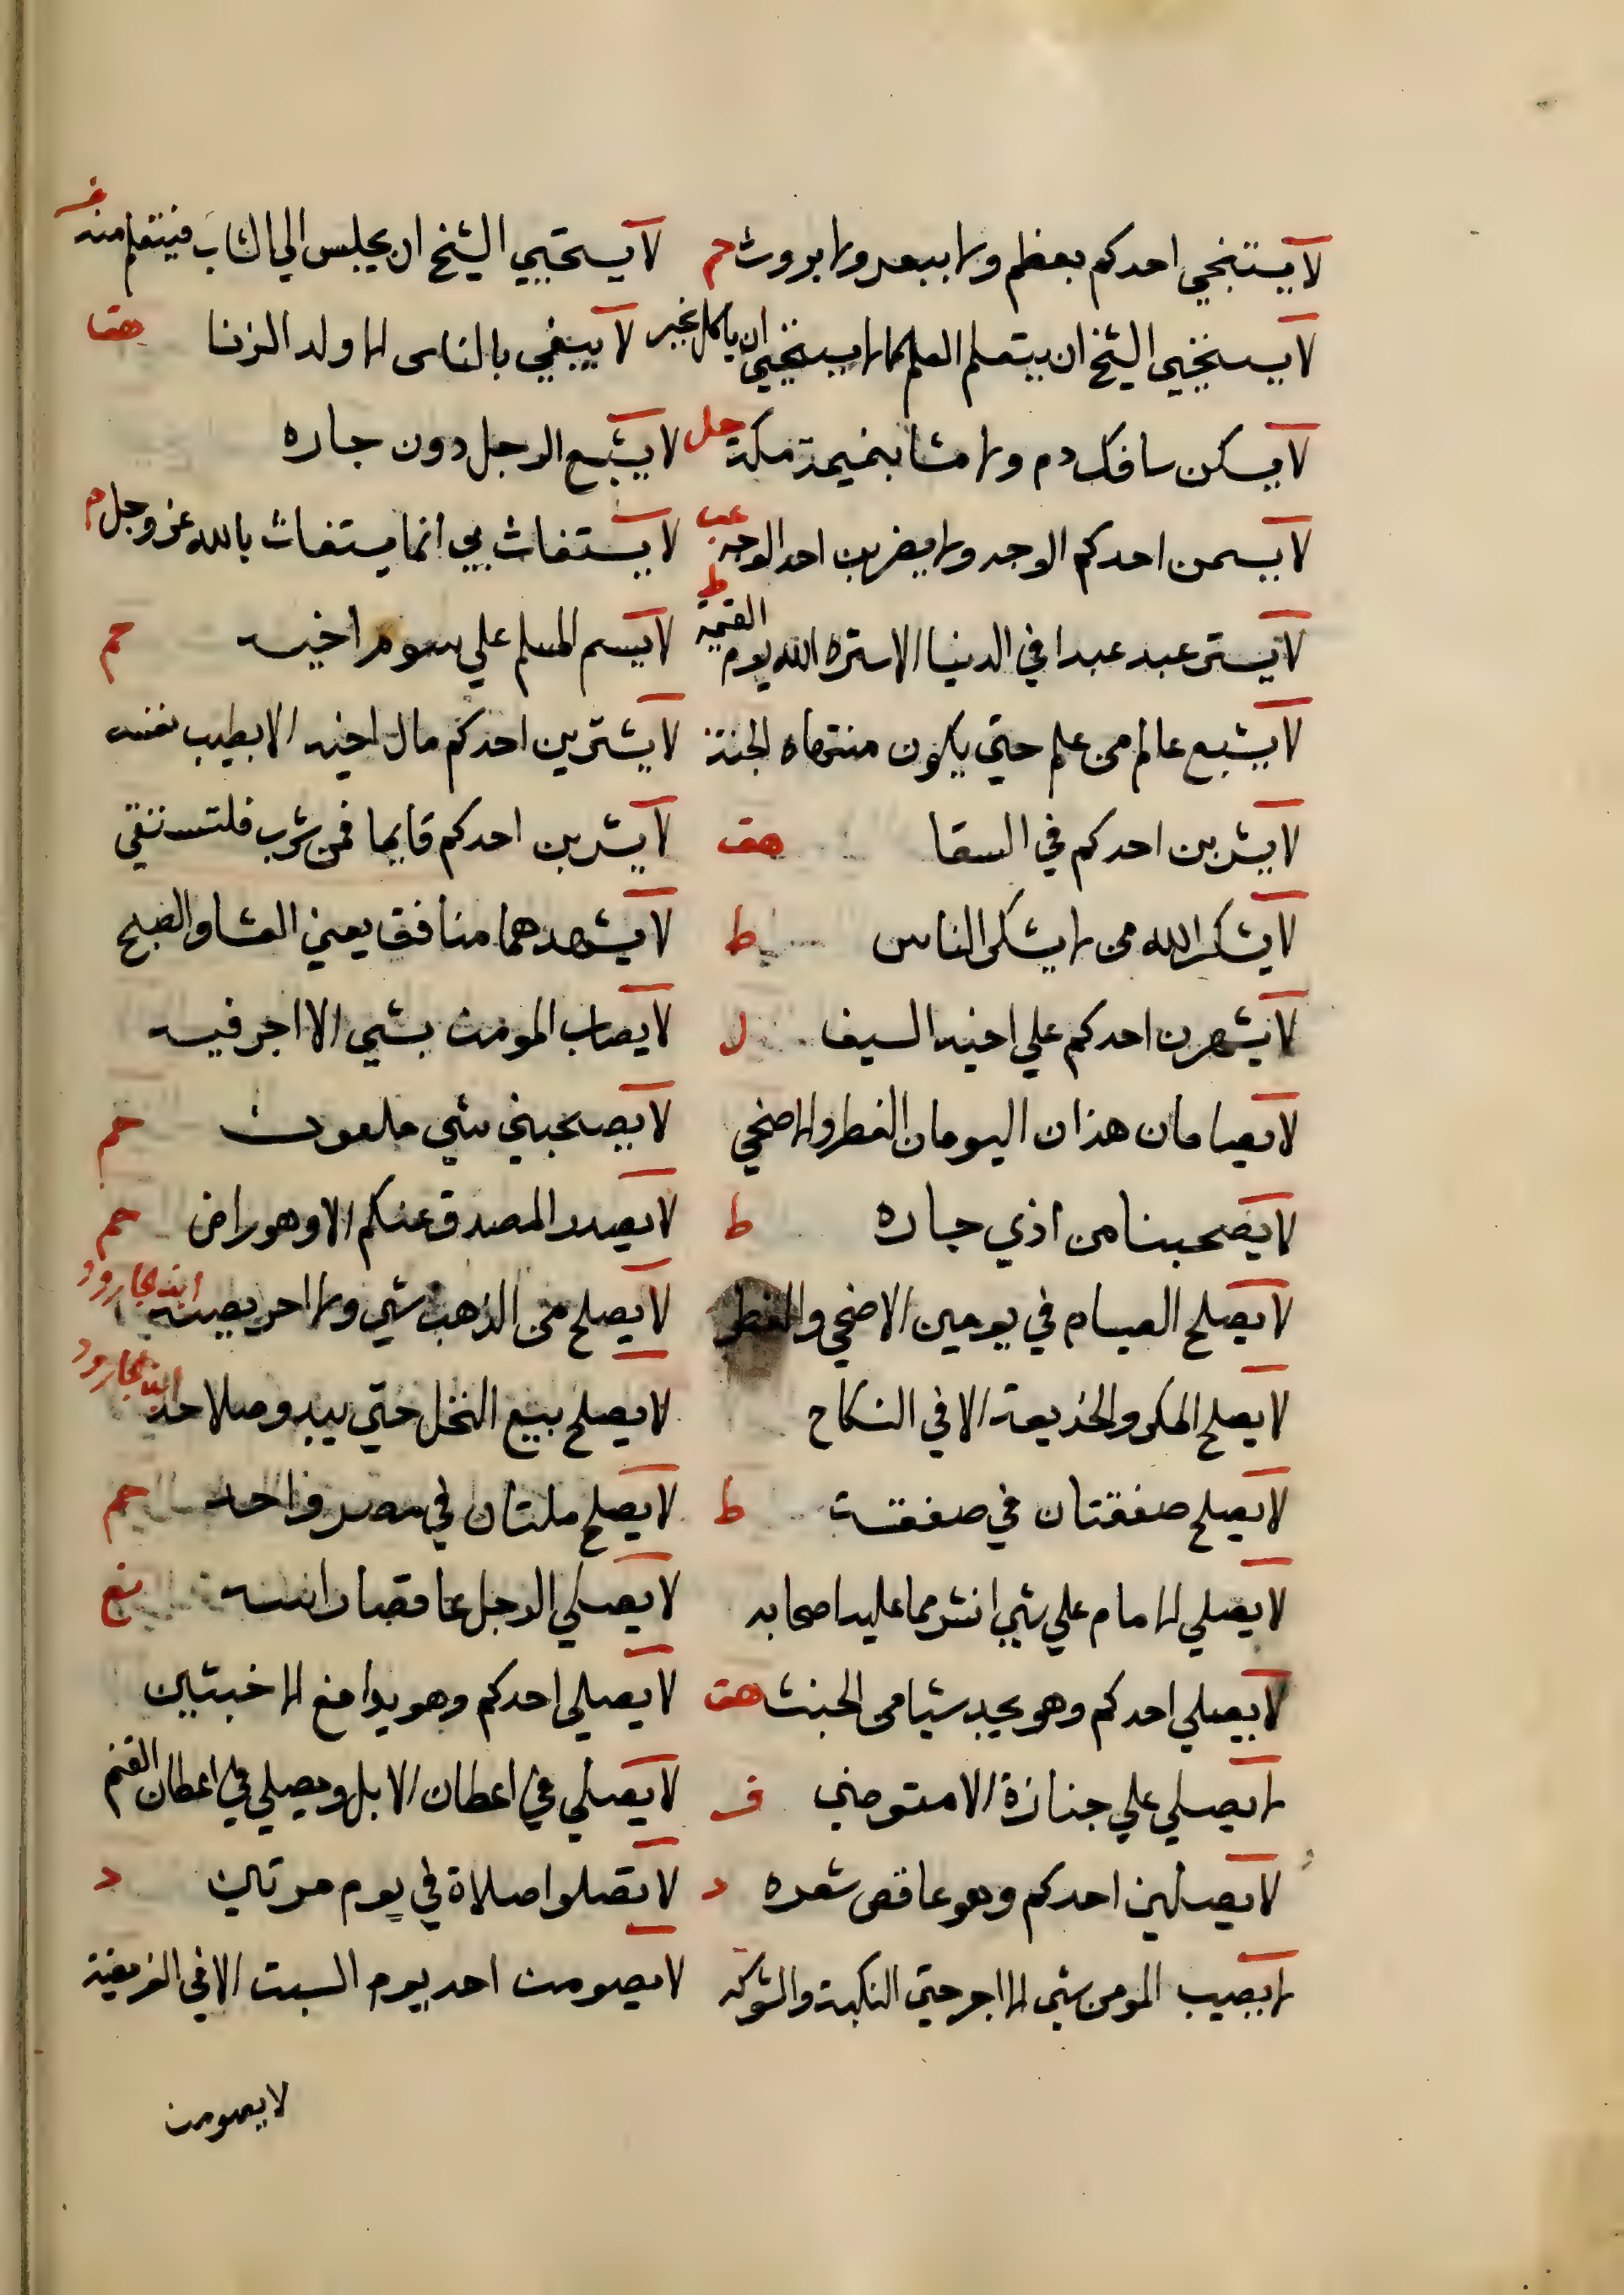 لا يستنجي احدكم بعظم ولا ببعر ولا بروث حم لا يستحيي الشيخ ان يجلس الي الشاب فيتعلم منه فر
لا يستحيي الشيخ ان يتعلم العلم كما لا يستحيي ان ياكل الخبز لا يبغي بالناس الا ولد الزنا هق
لا يسكن سافك دم ولا مشا بنميمة مكة حل لا يشبع الرجل دون جاره
لا يسمن احدكم الوجه ولا يضربن احد الوجه عب لا يستغاث بي انما يستغاث بالله عز وجل م
لا يستر عبد عبدا في الدنيا الا ستره الله يوم القيمة ط لا يسم المسلم علي سوم اخيه حم
لا يشبع عالم من علم حتي يكون منتهاه الجنة لا يشترين احدكم مال اخيه الا بطيب نفسه
لا يشربن احدكم في السقا هق لا يشربن احدكم قايما فمن شرب فلتستقي
لا يشكر الله من لا يشكر الناس ط لا يشهدهما منافق يعني العشا والصبح
لا يشهرن احدكم علي اخيه السيف ل لا يصاب المومن بشي الا اجر فيه
لا يصامان هذان اليومان الفطر والاضحي لا يصحبني شي ملعون حم
لا يصحبنا من اذي جاره ط لا يصدر المصدق عنكم الا وهو راض حم
لا يصلح الصيام في يومين الاضحي والفطر لا يصلح من الذهب شي ولا ابن الجارود
لا يصلح المكر والخديعة الا في النكاح لا يصلح بيع النخل حتي يبدو صلاحه ابن الجارود
لا يصلح صفقتان في صفقة ط لا يصلح ملتان في مصر واحد حم
لا يصلي الامام علي شي انشر مما عليه اصحابه لا يصلي الرجل عاقصا راسه
لا يصلي احدكم وهو يجد شيا من الخبث هق لا يصلي احدكم وهو يدافع الاخبثين
لا يصلي علي جنازة الا متوضي فر لا يصلي في اعطان الابل ويصلي في اعطان الغنم
لا يصلين احدكم وهو عاقص شعره د لا تصلوا صلاة في يوم مرتين د
لا يصيب المومن شي الا اجر حتي النكبة والشوكة لا يصومن احد يوم السبت الا في الفريضة
لا يصومن